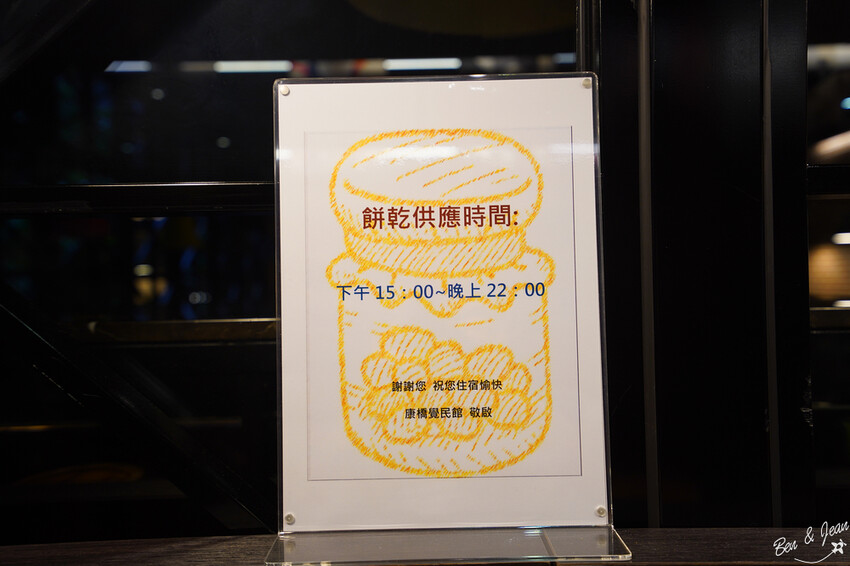 餅乾供應時間:
下午 15：00~晚上 22：00
謝謝您 祝您住宿愉快
康橋覺民館 敬啟
Ben & Jean